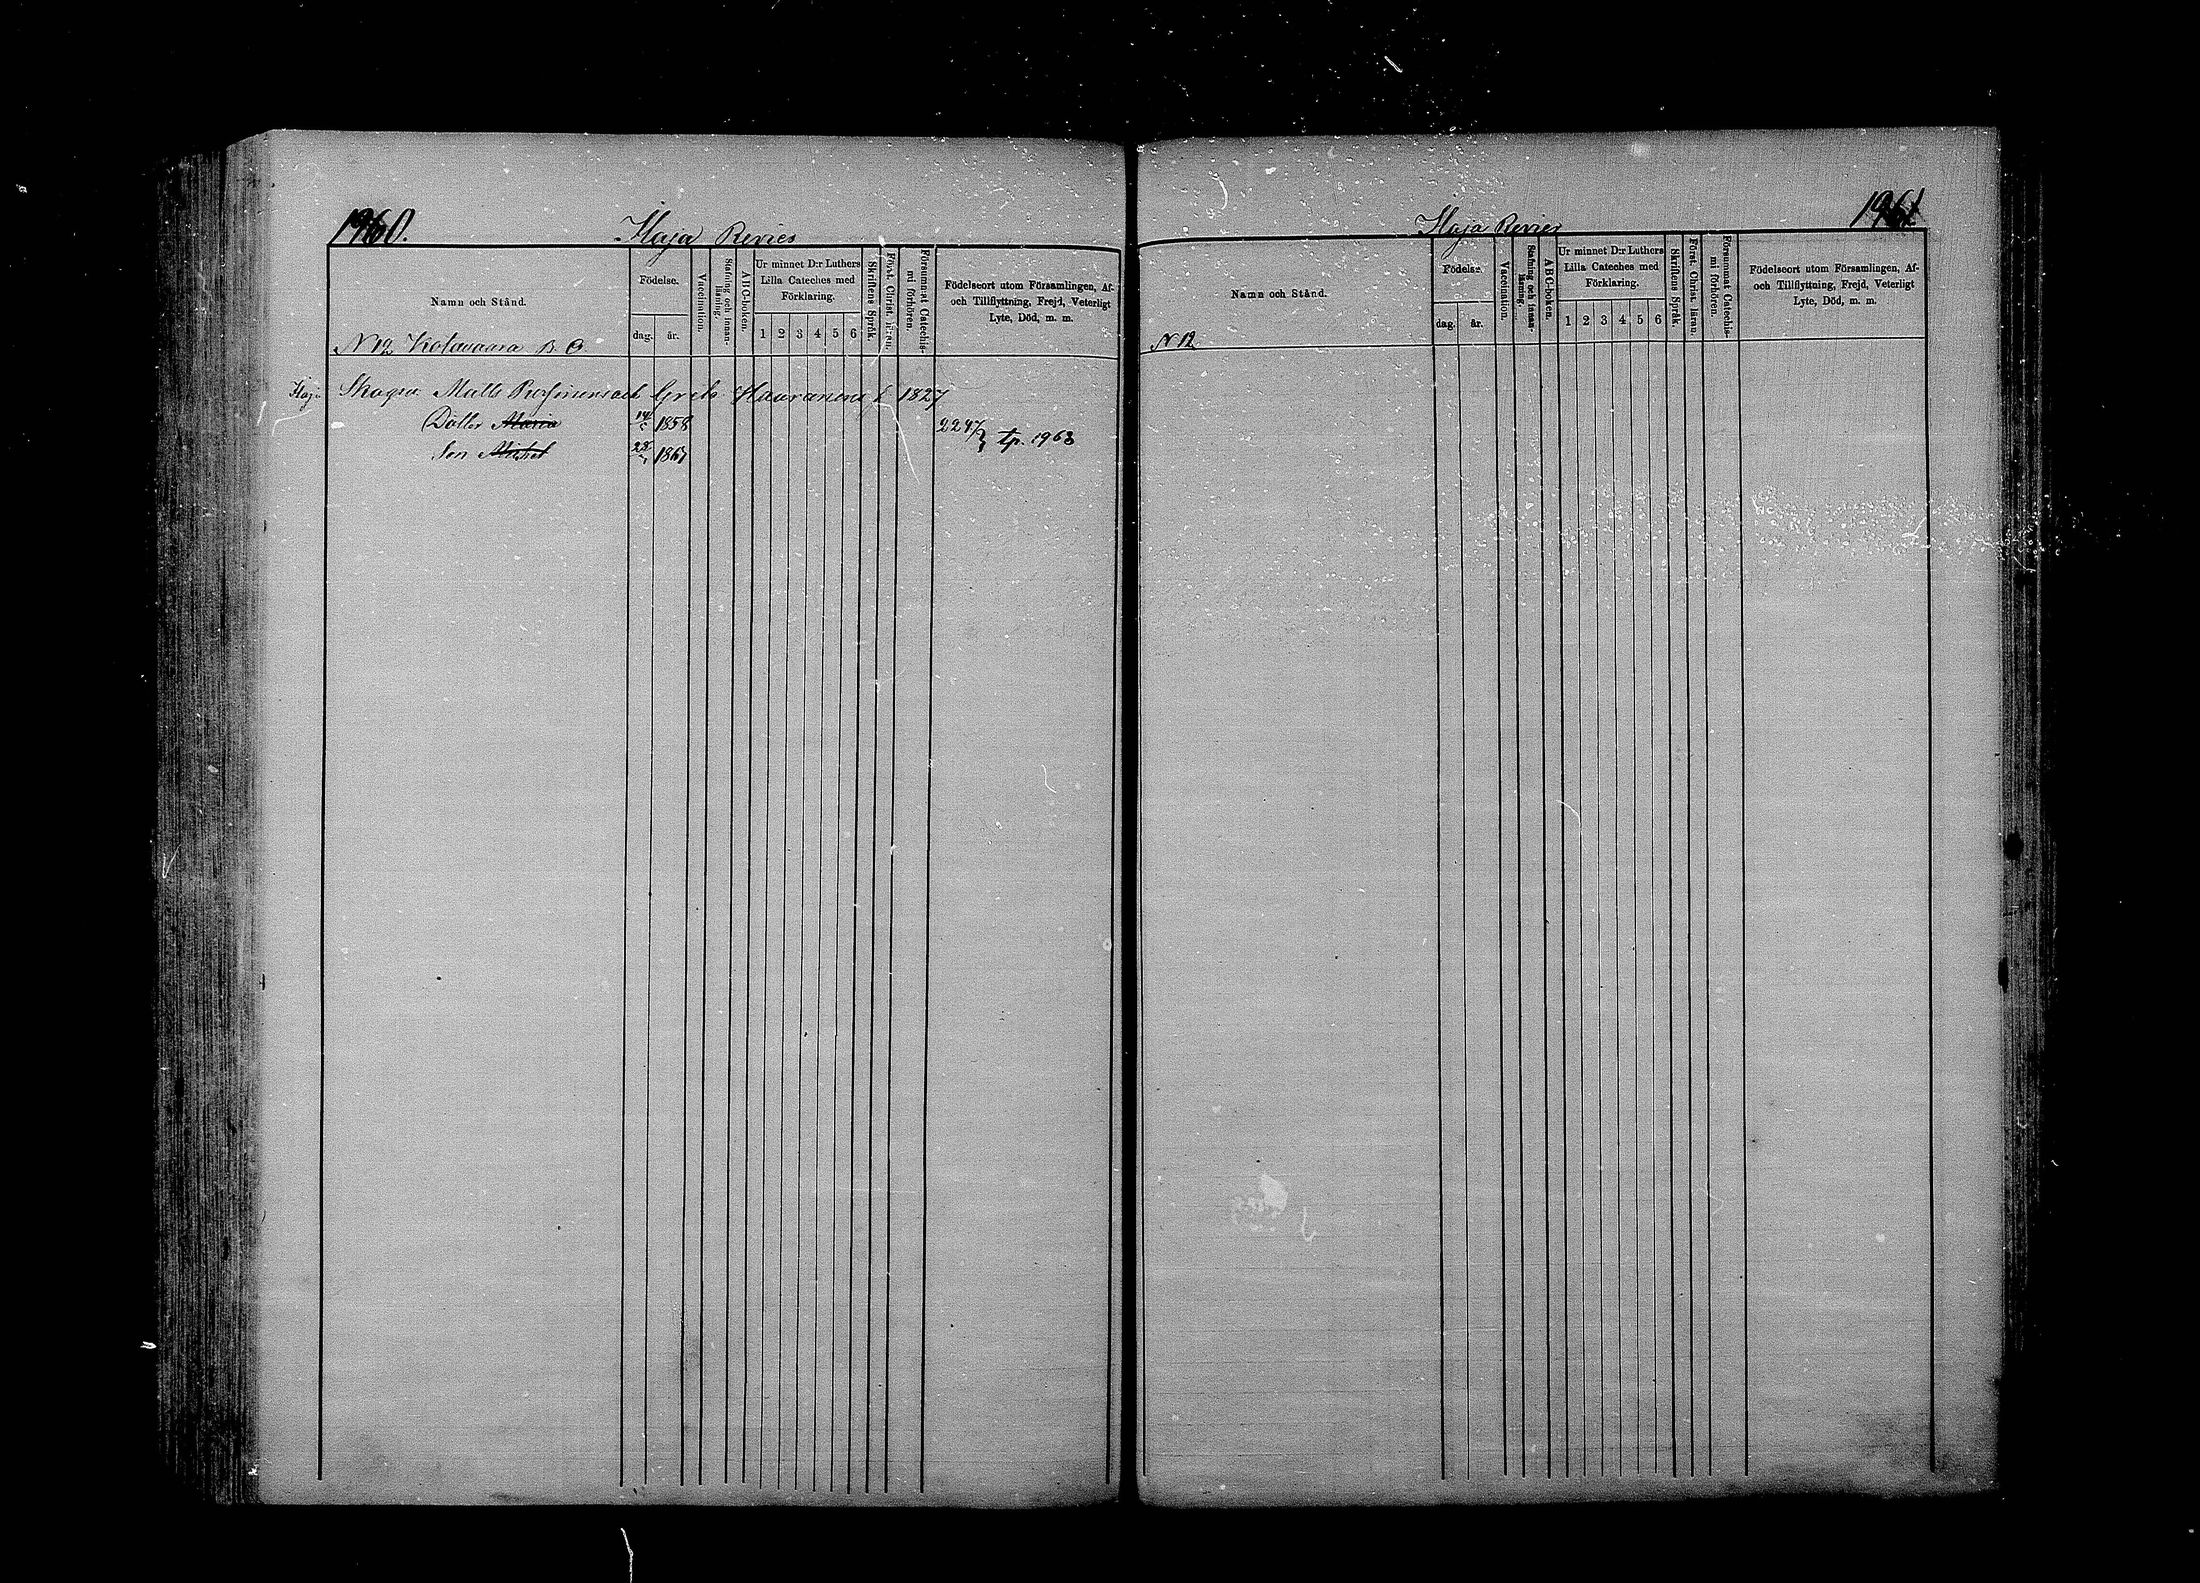 1960.
Koja Revier
Namn och Stånd.
Födelse.
dag.
år.
Vaccination.
Stafning och innan-
läsning.
ABC-boken.
Ur minnet D:r Luthers
Lilla Cateches med
Förklaring.
1 2 3 4 5 6
Skriftens Språk.
Först. Christ. läran.
Försummat Catechis-
mi förhören.
Födelseort utom Församlingen, Af-
och Tillflyttning, Frejd, Veterligt
Lyte, Död, m. m.
N 12 Kotavaara
Koja
Matts och Greta f. 1827
Dotter Maria 1858 2247
Son Michel 28 1861 tp. 1963
1961
Koja Revier
Namn och Stånd.
Födelse.
dag.
år.
Vaccination.
Stafning och innan-
läsning.
ABC-boken.
Ur minnet D:r Luthers
Lilla Cateches med
Förklaring.
1 2 3 4 5 6
Skriftens Språk.
Först. Christ. läran.
Försummat Catechis-
mi förhören.
Födelseort utom Församlingen, Af-
och Tillflyttning, Frejd, Veterligt
Lyte, Död, m. m.
N 12